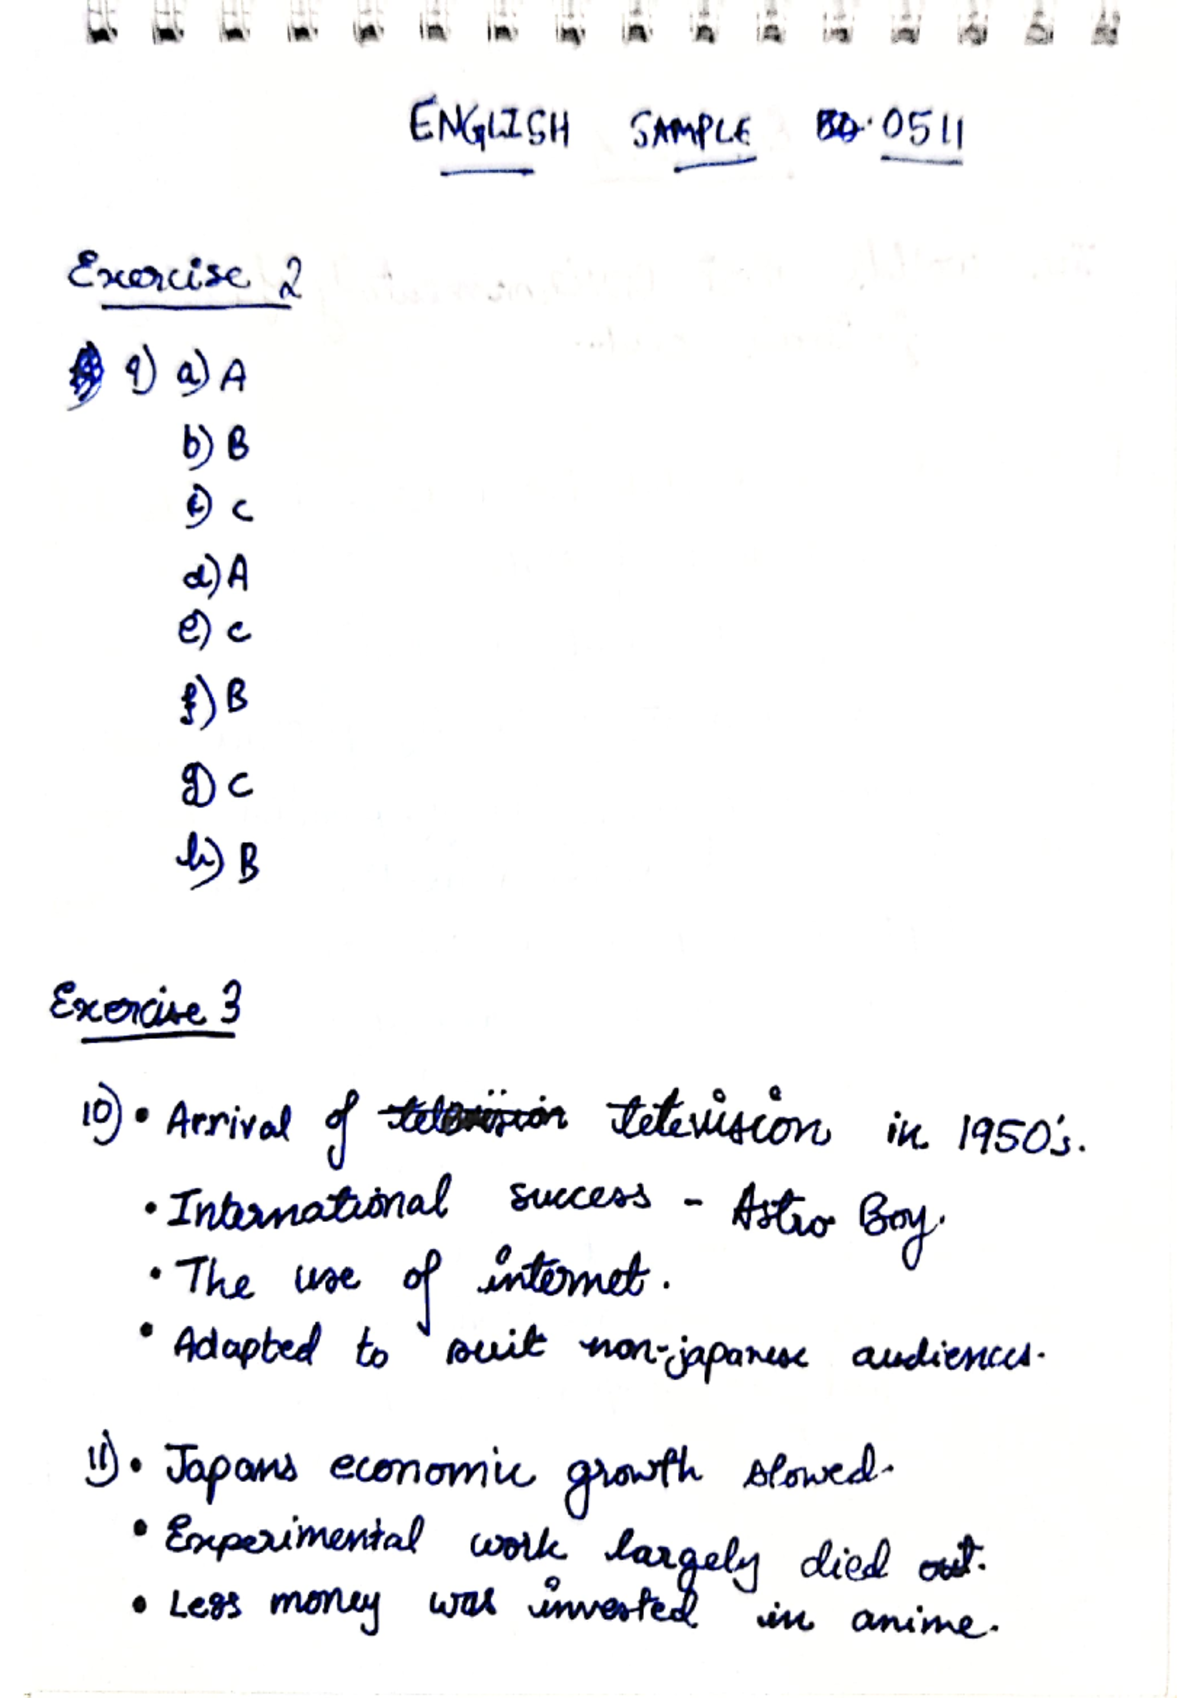 ENGLISH SAMPLE 0511
Exercise 2
9) a) A
b) B
c) C
d) A
e) C
f) B
g) C
h) B
Exercise 3
10) • Arrival of television television in 1950's.
• International success - Astro Boy.
• The use of internet.
• Adapted to suit non-japanese audiences.
11) • Japans economic growth slowed.
• Experimental work largely died out.
• Less money was invested in anime.